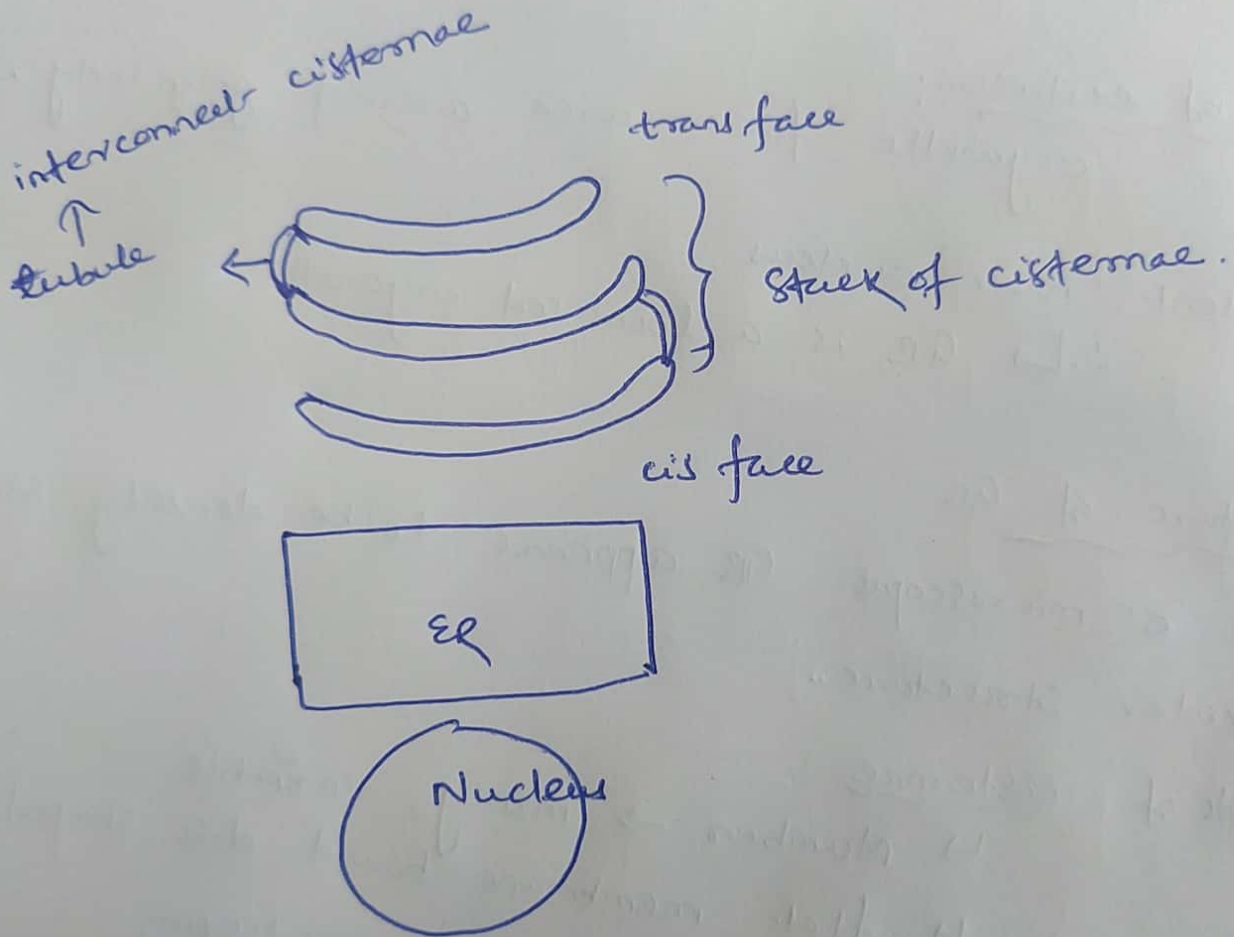 interconnect cisternae
tubule
trans face
Stack of cisternae.
cis face
ER
Nucleus